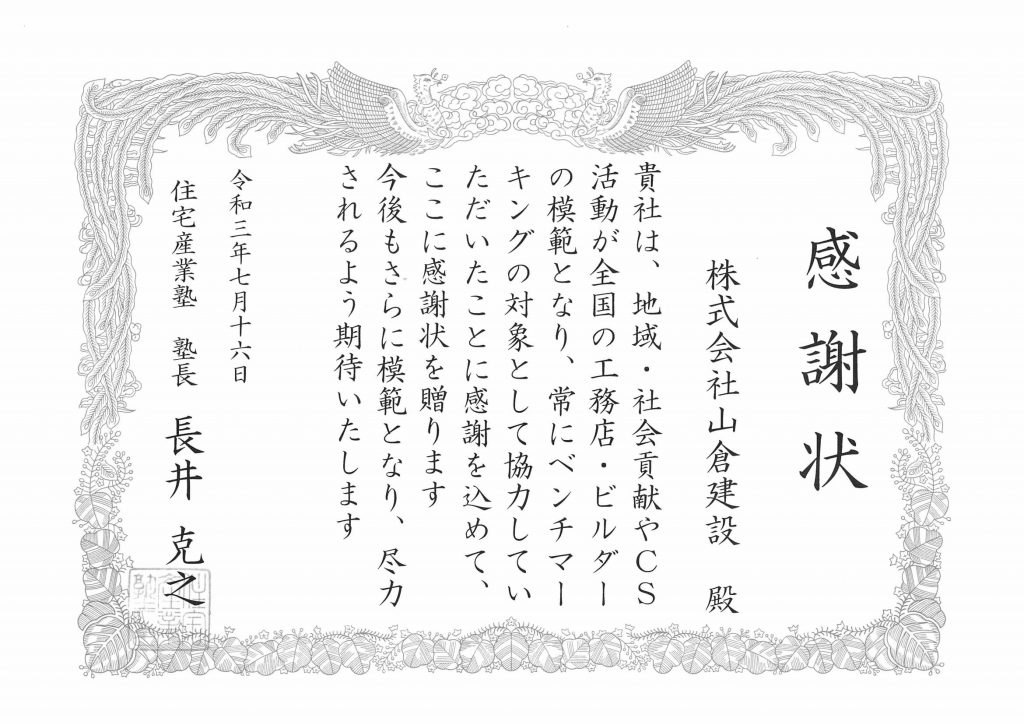 感謝状
株式会社山倉建設 殿
貴社は、地域・社会貢献やCS
活動が全国の工務店・ビルダー
の模範となり、常にベンチマー
キングの対象として協力してい
ただいたことに感謝を込めて、
ここに感謝状を贈ります
今後もさらに模範となり、尽力
されるよう期待いたします
令和三年七月十六日
住宅産業塾 塾長 長井 克之